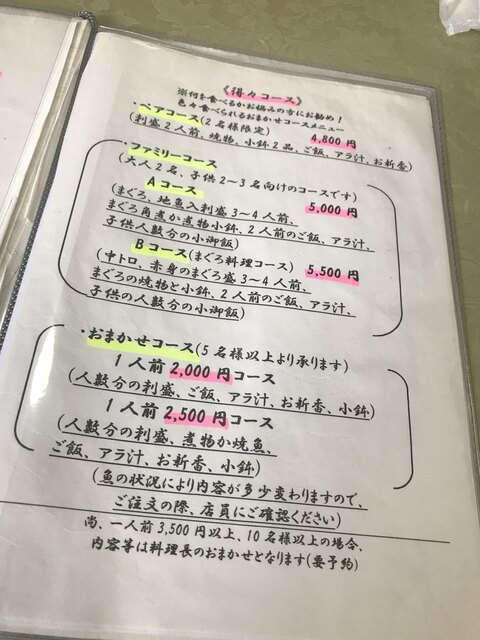 《得々コース》
※何を食べるかお悩みの方にお勧め！
色々食べられるおまかせコースメニュー
・ペアコース(2名様限定) 4,800円
(刺盛2人前、焼物、小鉢2品、ご飯、アラ汁、お新香)
・ファミリーコース
(大人2名、子供2～3名向けのコースです)
Aコース 5,000円
(まぐろ、地魚入刺盛3～4人前、
まぐろ角煮か煮物小鉢、2人前のご飯、アラ汁、
子供人数分の小御飯)
Bコース(まぐろ料理コース) 5,500円
(中トロ、赤身のまぐろ盛3～4人前、
まぐろの焼物と小鉢、2人前のご飯、アラ汁、
子供の人数分の小御飯)
・おまかせコース(5名様以上より承ります)
1人前2,000円コース
(人数分の刺盛、ご飯、アラ汁、お新香、小鉢)
1人前2,500円コース
(人数分の刺盛、煮物か焼魚、
ご飯、アラ汁、お新香、小鉢)
(魚の状況により内容が多少変わりますので、
ご注文の際、店員にご確認ください)
尚、一人前3,500円以上、10名様以上の場合、
内容等は料理長のおまかせとなります(要予約)